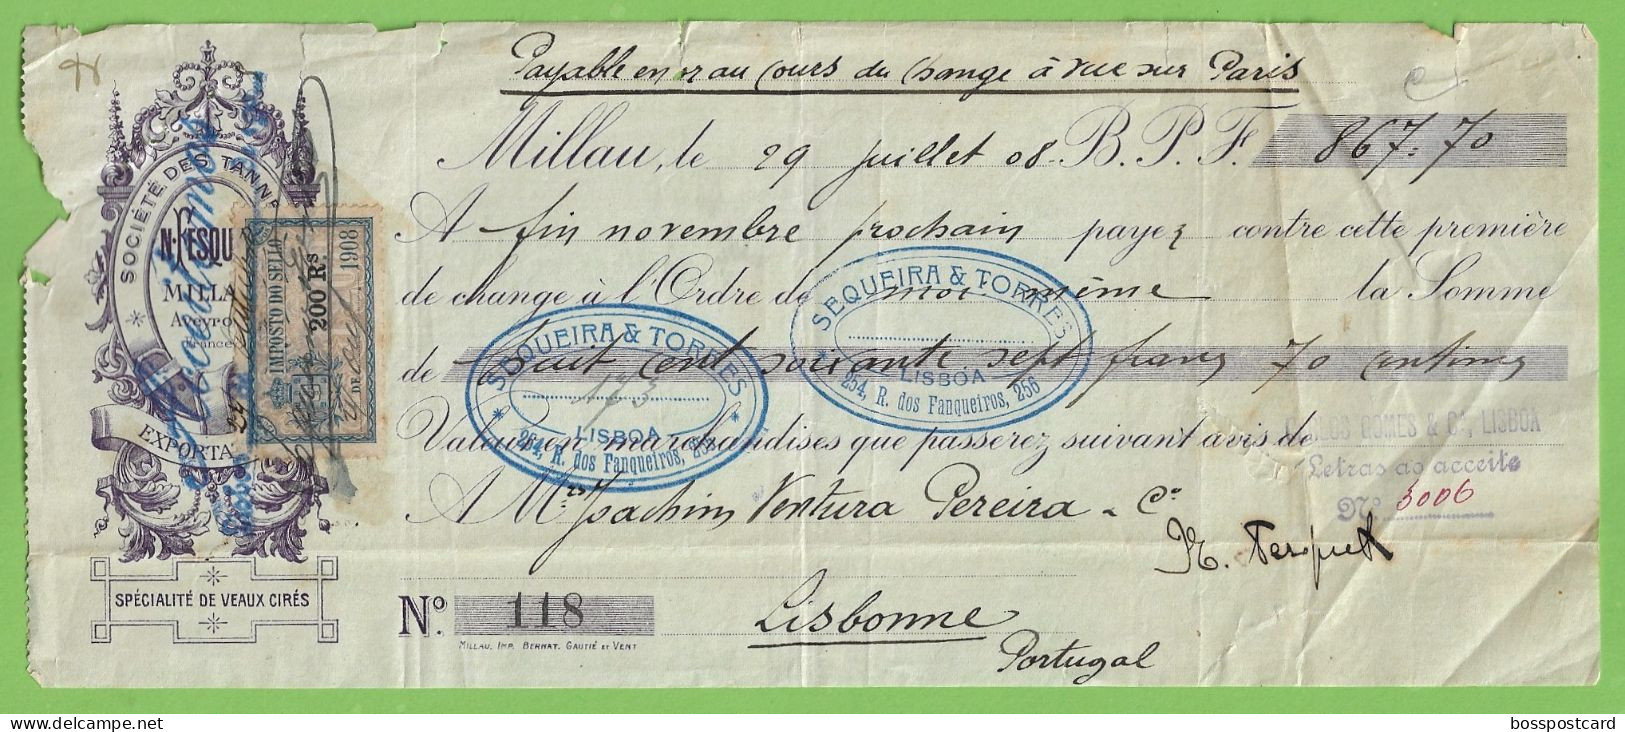 Payable en or au Cours du Change à vue sur Paris
Millau, le 29 Juillet 08. B. P. F. 867=70
A fin novembre prochain payez contre cette première
de change à l'Ordre de moi même la Somme
de huit cent soixante sept francs 70 centimes
Valeur en marchandises que passerez suivant avis de
A M.rs Joachim Ventura Pereira & Co
N. Fesquet
Nº 118
Lisbonne
Portugal
MILLAU, IMP. BERNAT, GAUTIÉ ET VENT
SOCIÉTÉ DES TANN
N. FESQU
MILLA
Aveyro
France
EXPORTA
SPÉCIALITÉ DE VEAUX CIRÉS
IMPOSTO DO SELLO
200 Rs
1908
DE
SEQUEIRA & TORRES
193
LISBOA
254, R. dos Fanqueiros, 256
SEQUEIRA & TORRES
LISBOA
254, R. dos Fanqueiros, 256
GOMES & Cª, LISBOA
Letras ao acceite
Nº 3006
bosspostcard